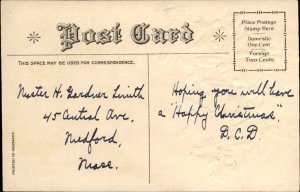 Post Card
Place Postage
Stamp Here
Domestic
One Cent
Foreign
Two Cents
THIS SPACE MAY BE USED FOR CORRESPONDENCE.
Myster H. Gardner Smith
45 Central Ave,
Medford,
Mass.
Hoping you will have
a "Happy Christmas."
D.C.D.
PRINTED IN GERMANY